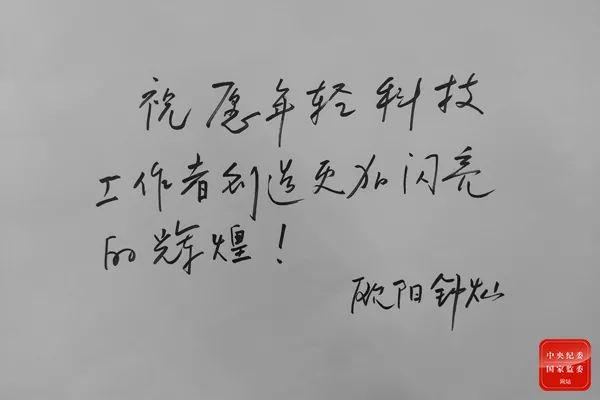 祝愿年轻科技
工作者创造更加闪亮
的辉煌！
欧阳钟灿
中央纪委
国家监委
网站